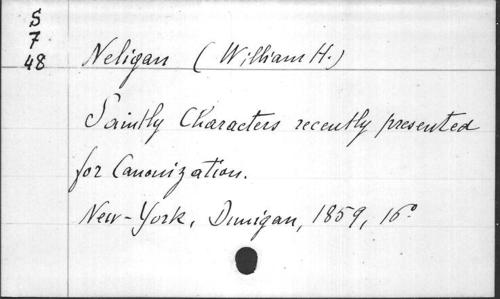 S
7
48
Neligan (William H.)
Saintly Characters recently presented
for Canonization.
New-York, Dunigan, 1859, 16°